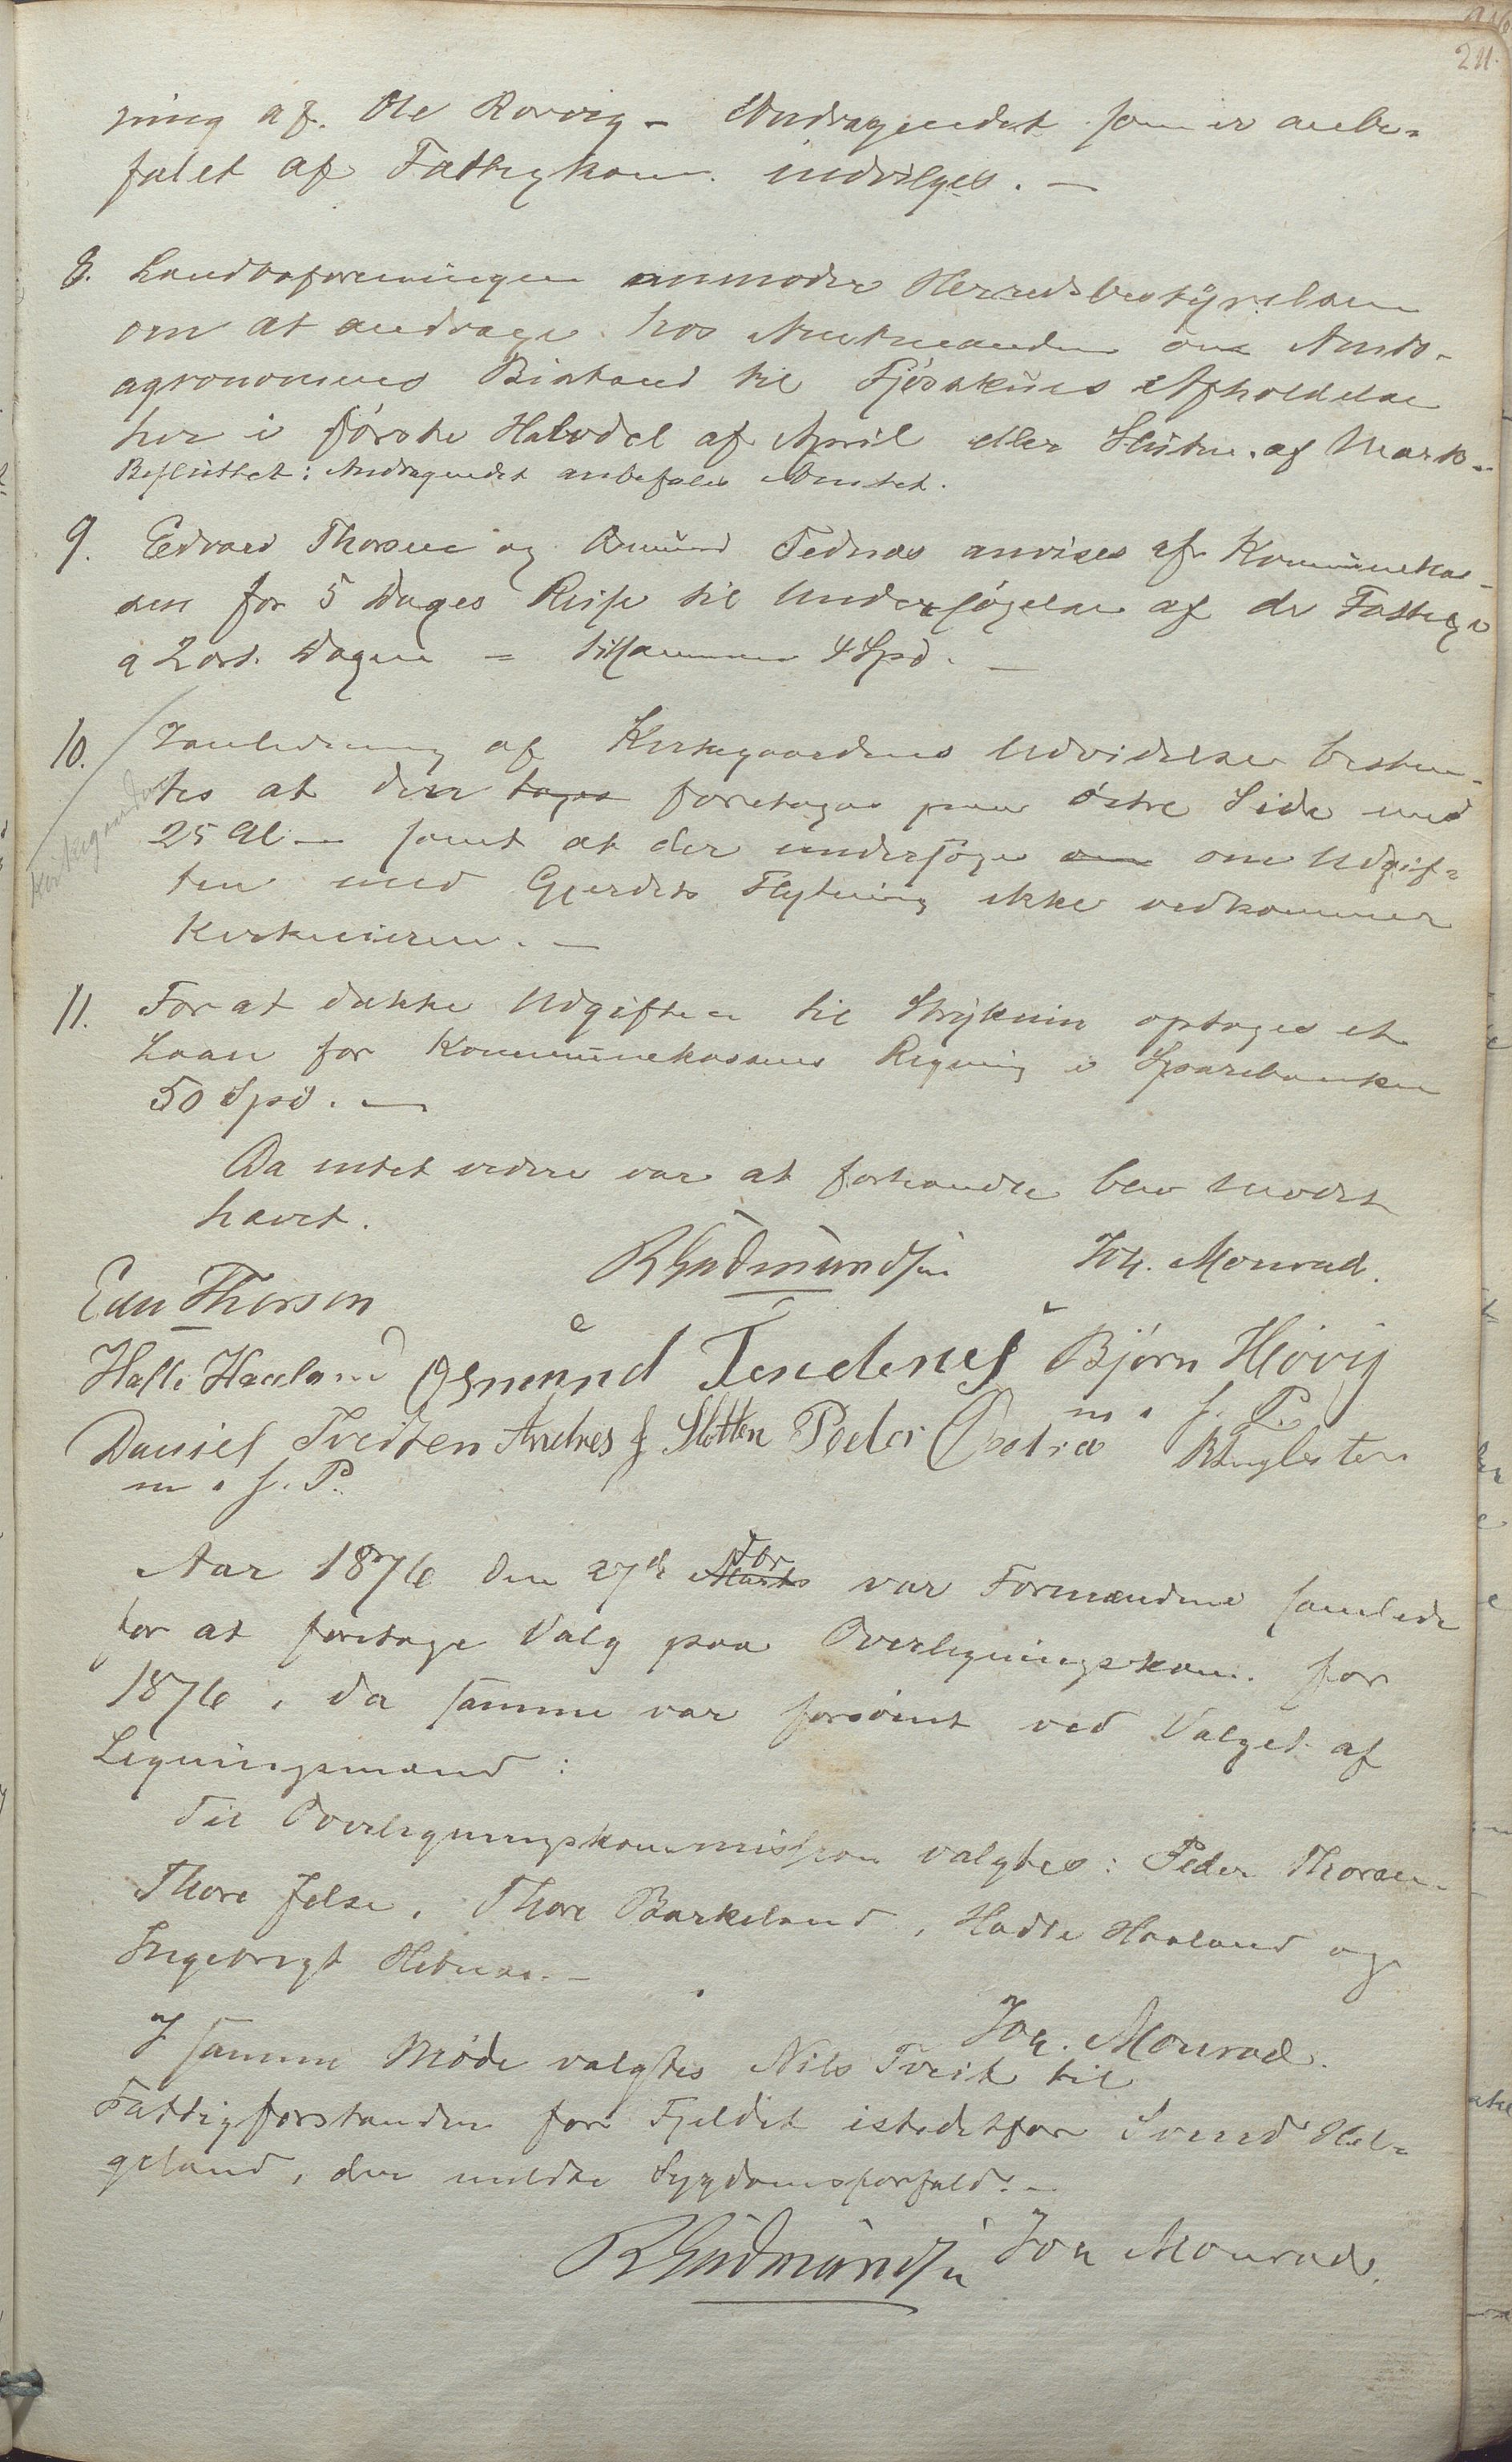 211.
ning af Ole Rørvig – Andragendet som er anbe-
falet af Fattigkom. indvilges. –
8. Landboforeningen anmoder Herredsbestyrelsen
om at andrage hos Amtmanden om Amts-
agronomens Bistand til Fjøskurs Afholdelse
her i første Halvdel af April eller Slutn. af Marts.
Besluttet: Andragendet anbefales Amtet.
9. Edvard Thorsen og Osmund Tednæs anvises af Kommunekas-
sen for 5 Dages Reise til Undersøgelse af de Fattige
a 2 ort. Dagen = tilsammen 4 Spd. –
10. I anledning af Kirkegaardens Udvidelse bestem-
Kirkegaarden
tes at den tages foretages paa østre Side med
25 Al – samt at der undersøges om om Udgif-
ten med Gjerdets Flytning ikke vedkommer
Kirkeeieren. –
11. For at dække Udgiften til optages et
Laan for Kommunekassens Regning i Sparebanken
50 Spd. –
Da intet videre var at forhandle blev Mødet
hævet.
R Gudmundsen Joh. Monrad.
Edv Thorsen
Halle Haaland Osmund Tendenes Bjørn Høivig
m. f. P.
Daniel Tveiten Andres J Slotten Peder Østrø
m. f. P.
Aar 1876 den 27de Marts Fbr var Formændene samlede
for at foretage Valg paa Overligningskom. for
1876, da samme var forsømt ved Valget af
Ligningsmænd:
Til Overligningskommission valgtes: Peder Thorsen
Thore Jelse, Thore Barkeland, Hadle Haaland og
Ingebrigt Hebnes. –
Joh. Monrad.
I samme Møde valgtes Nils Tveit til
Fattigforstander for Fjeldet istedetfor Svend Hel-
geland, der meldte Sygdomsforfald. –
R Gudmundsen Joh Monrad.